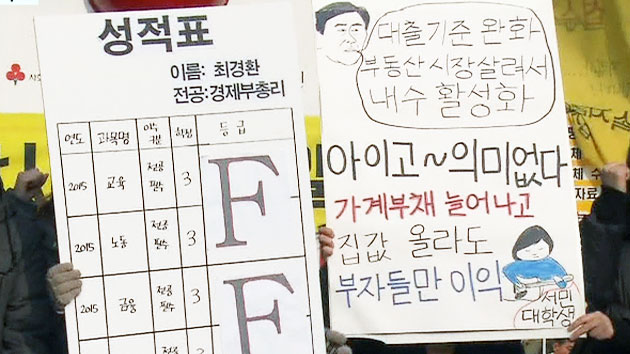 성적표
이름: 최경환
전공:경제부총리
연도 과목명 이수구분 학점 등급
2015 교육 전공필수 3 F
2015 노동 전공필수 3 F
2015 금융 전공필수 3 F
대출기준 완화
부동산 시장살려서
내수 활성화
아이고~의미없다
가계부채 늘어나고
집값 올라도
부자들만 이익
서민
대학생